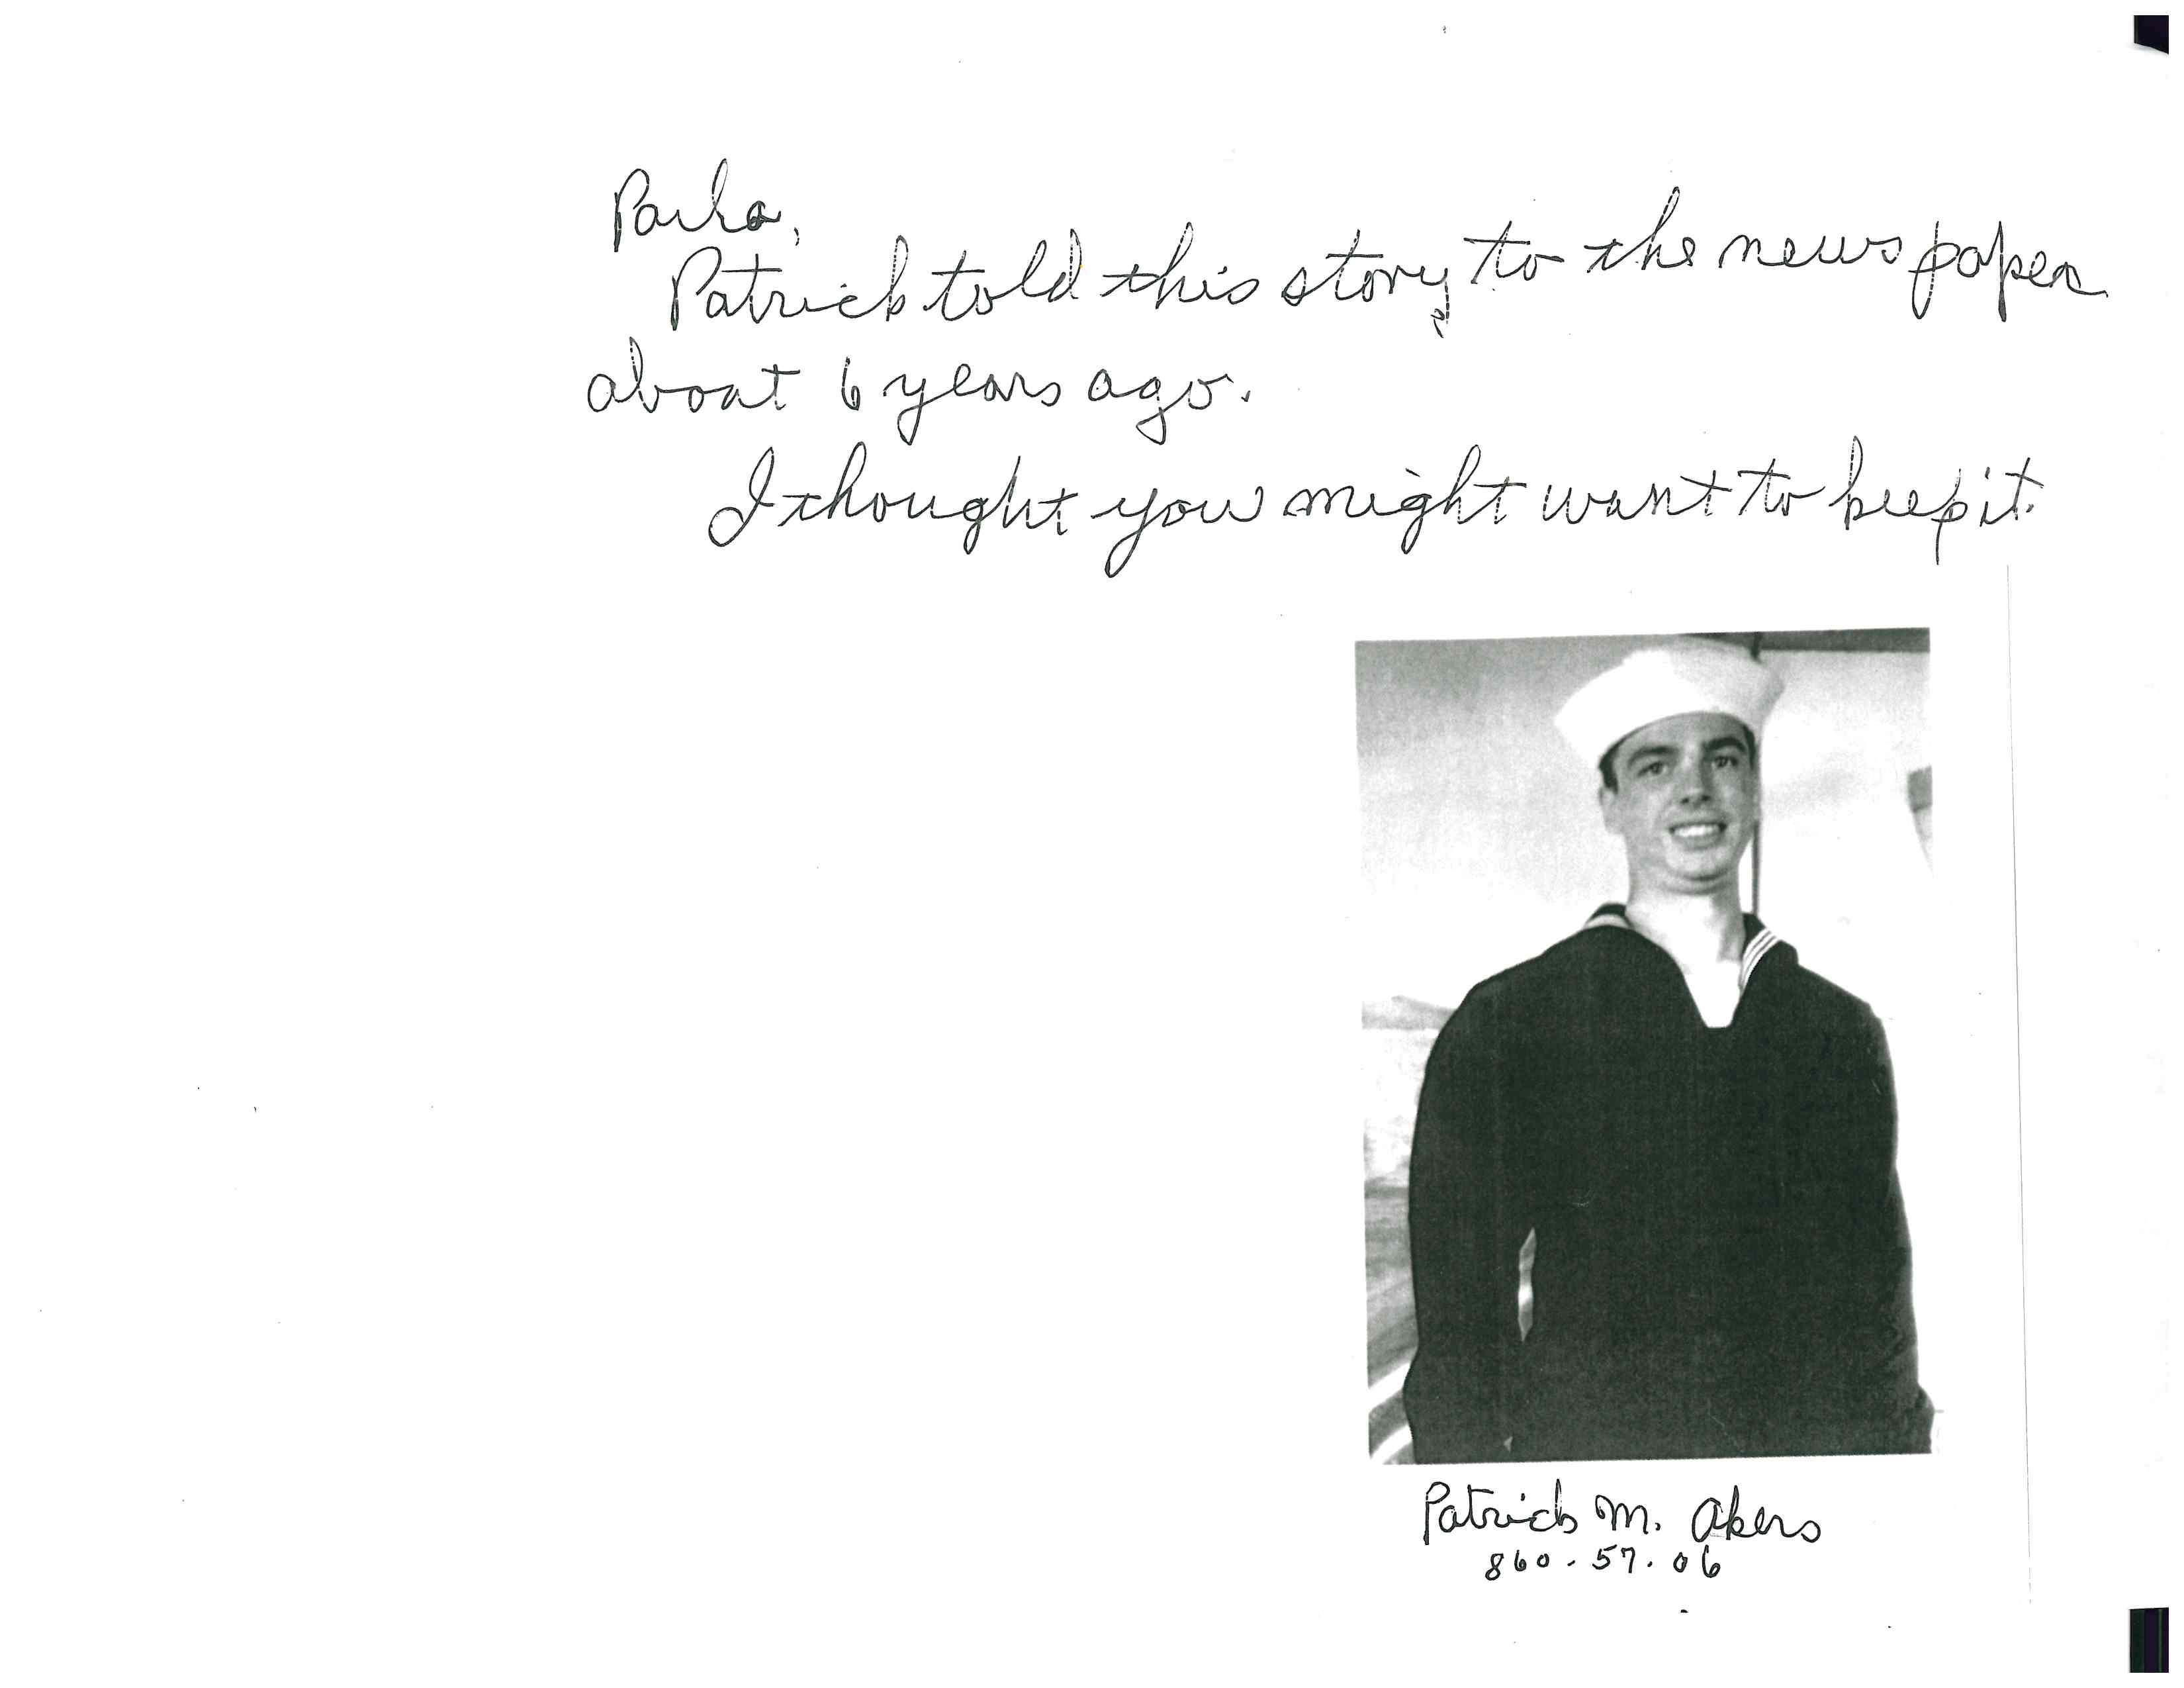 Paula,
Patrick told this story to the newspaper
about 6 years ago.
I thought you might want to keep it.
Patrick M. Akers
860-57-06